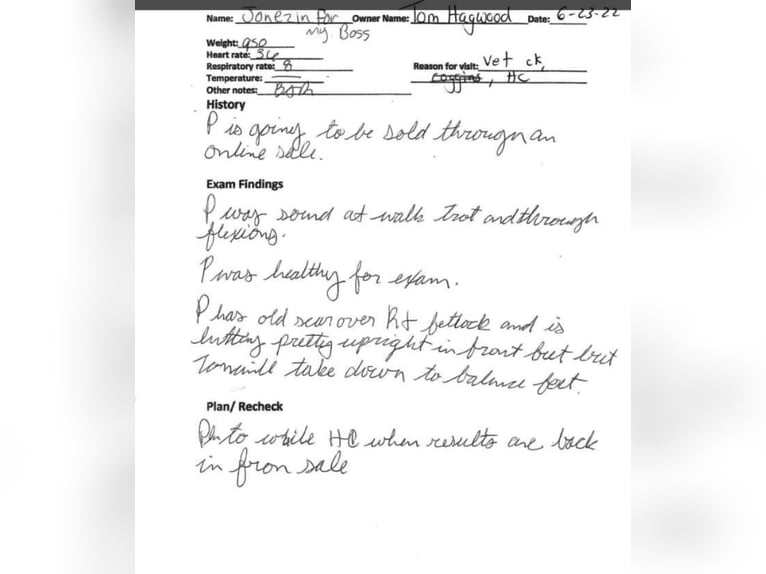 Name: Jonezin for Owner Name: Tom Hagwood Date: 6-23-22
my Boss
Weight: 950
Heart rate: 36
Respiratory rate: 8 Reason for visit: Vet ck,
Temperature: — coggins, HC
Other notes:
History
P is going to be sold through an
online sale.
Exam Findings
P was sound at walk trot and through
flexions.
P was healthy for exam.
P has old scar over Rt fetlock and is
pretty upright in front feet but
Tom will take down to balance feet.
Plan/ Recheck
HC when results are back
in from sale